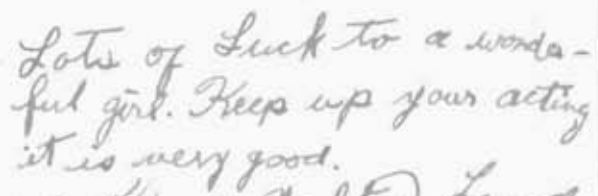 Lots of Luck to a wonder-
ful girl. Keep up your acting
it is very good.